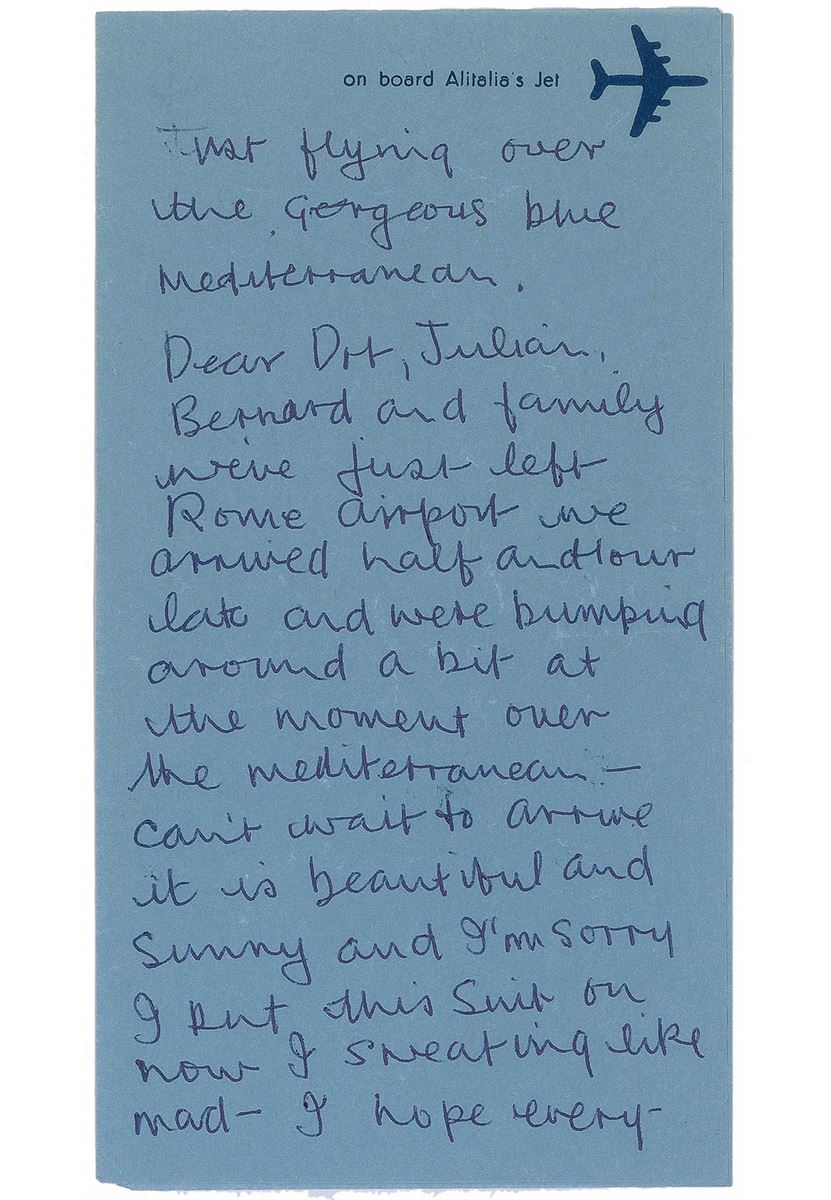 on board Alitalia's Jet
Just flying over
the gorgeous blue
Mediterranean.
Dear Dot, Julian,
Bernard and family
we've just left
Rome airport we
arrived half and hour
late and were bumping
around a bit at
the moment over
the mediterranean —
can't wait to arrive
it is beautiful and
Sunny and I'm sorry
I put this Suit on
now I sweating like
mad - I hope every-